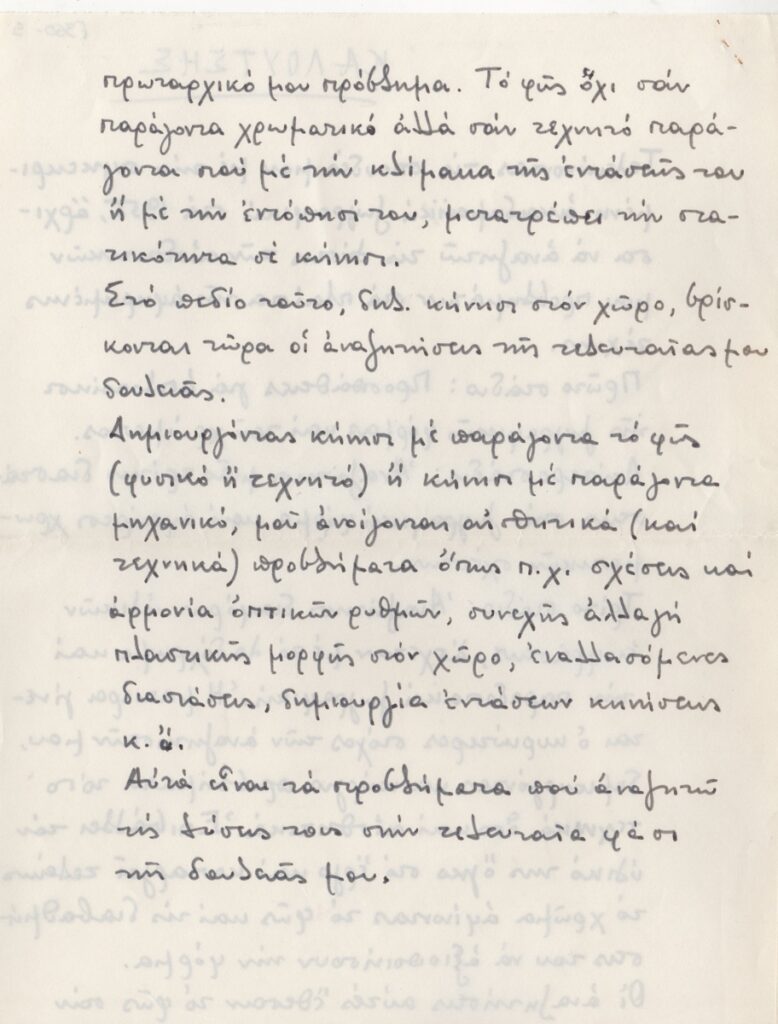 πρωταρχικό μου πρόβλημα. Τό φῶς ὄχι σάν
παράγοντα χρωματικό ἀλλά σάν τεχνητό παρά-
γοντα πού μέ τήν κλίμακα τῆς ἐντάσεῆς του
ἤ μέ τήν ἐντόπησί του, μετατρέπει τήν στα-
τικότητα σέ κίνησι.
Στό πεδίο τοῦτο, δηλ. κίνησι στόν χῶρο, βρίσ-
κονται τῶρα οἱ ἀναζητήσεις τῆς τελευταίας μου
δουλειᾶς.
Δημιουργόντας κίνησι μέ παράγοντα τό φῶς
(φυσικό ἤ τεχνητό) ἤ κίνησι μέ παράγοντα
μηχανικό, μοῦ ἀνοίγονται αἰσθητικά (καί
τεχνικά) προβλήματα ὅπως π.χ. σχέσεις καί
ἁρμονία ὀπτικῶν ρυθμῶν, συνεχῆς ἀλλαγή
πλαστικῆς μορφῆς στόν χῶρο, ἐναλλασόμενες
διαστάσεις, δημιουργία ἐντάσεων κινήσεως
κ.ἄ.
Αὐτά εἶναι τά προβλήματα πού ἀναζητῶ
τίς λύσεις τους στήν τελευταία φάσι
τῆς δουλειᾶς μου.